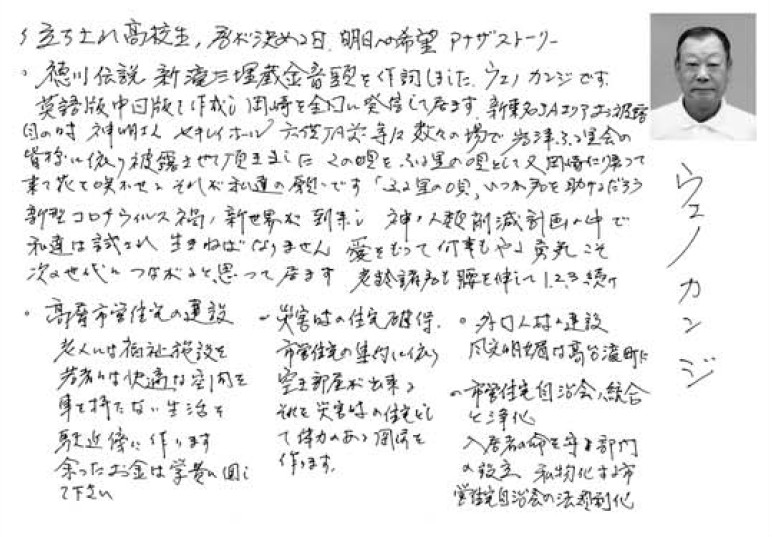 立ち上れ高校生,君が決める日.明日への希望 アナザストーリー
。徳川伝説 新滝三埋蔵金音頭を作詞しました.ウエノカンジです.
英語版中国版も作成し岡崎を全国に発信して居ます.新東名SAエリアお披露
目の時 神明さん セキレイホール 六供JA 等々数々の場で岩津ふる里会の
皆様に依り披露させて頂きました この唄をふる里の唄として又岡崎に帰って
来て花を咲かせる それが私達の願いです「ふる里の唄」いつか君を助けるだろう
新型コロナウイルス禍,新世界が到来し 神,人類削減計画の中で
私達は試され 生きねばなりません 愛をもって何事もやる勇気こそ
次の世代につながると思って居ます 老齢諸君も腰を伸して1,2,3
ウエノカンジ
。高層市営住宅の建設
老人には福祉施設を
若者には快適な空間を
車を持たない生活を
駅近傍に作ります
余ったお金は学費に回し
て下さい
災害時の住宅確保.
市営住宅の集約に依り
空き部屋が出来る
それを災害時の住宅とし
て体力のある岡崎を
作ります.
。外国人村の建設
市営住宅自治会の統合
と浄化
入居者の命を守る部門
の設立 私物化する市
営住宅自治会の法規制化